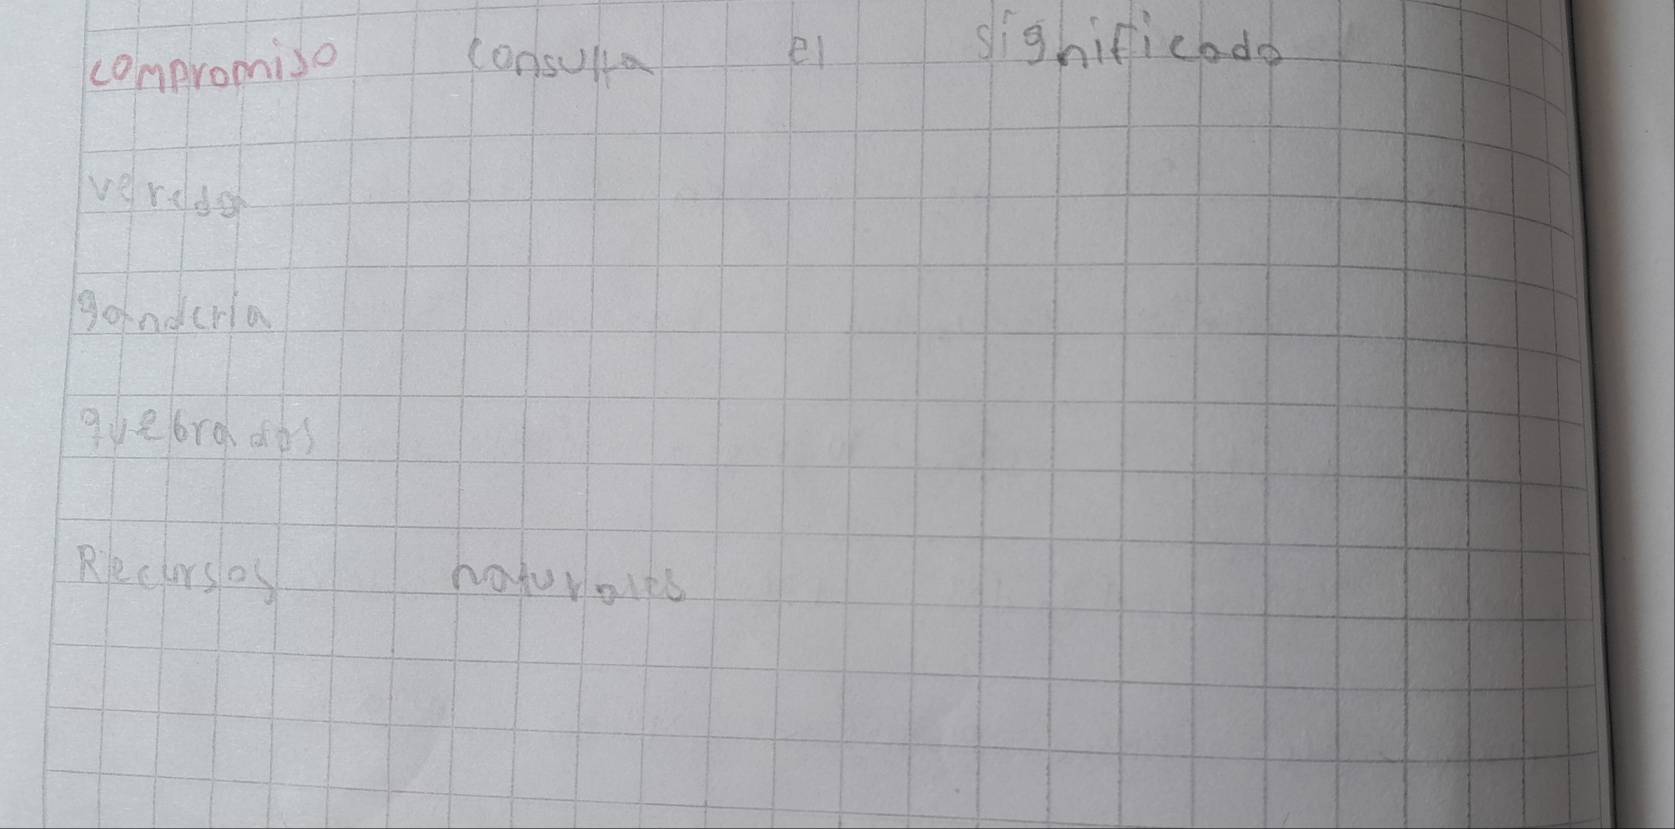 compromiso consulta el significado
vereda
ganderia
quebradas
Recursos naturales